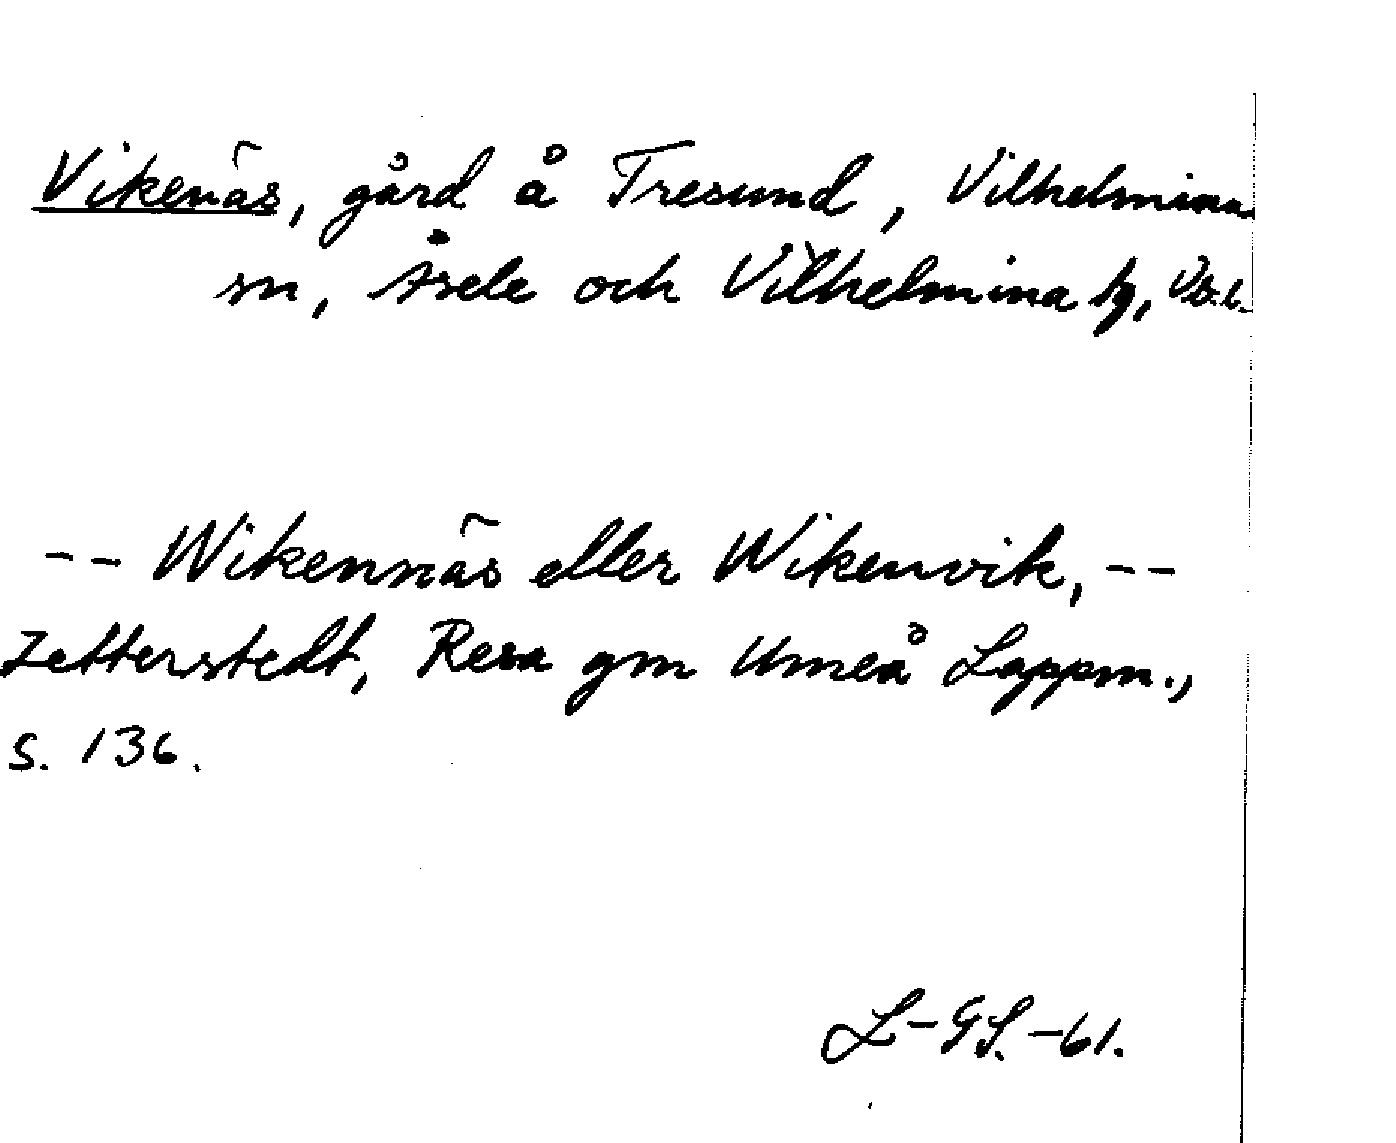 Vikenäs, gård å Tresund, Vilhelmina
sn, Åsele och Vilhelmina tg, Vb.l.
-- Wikennäs eller Wikenvik, --
Zetterstedt, Resa gm Umeå Lappm.,
s. 136.
L-GS.-61.